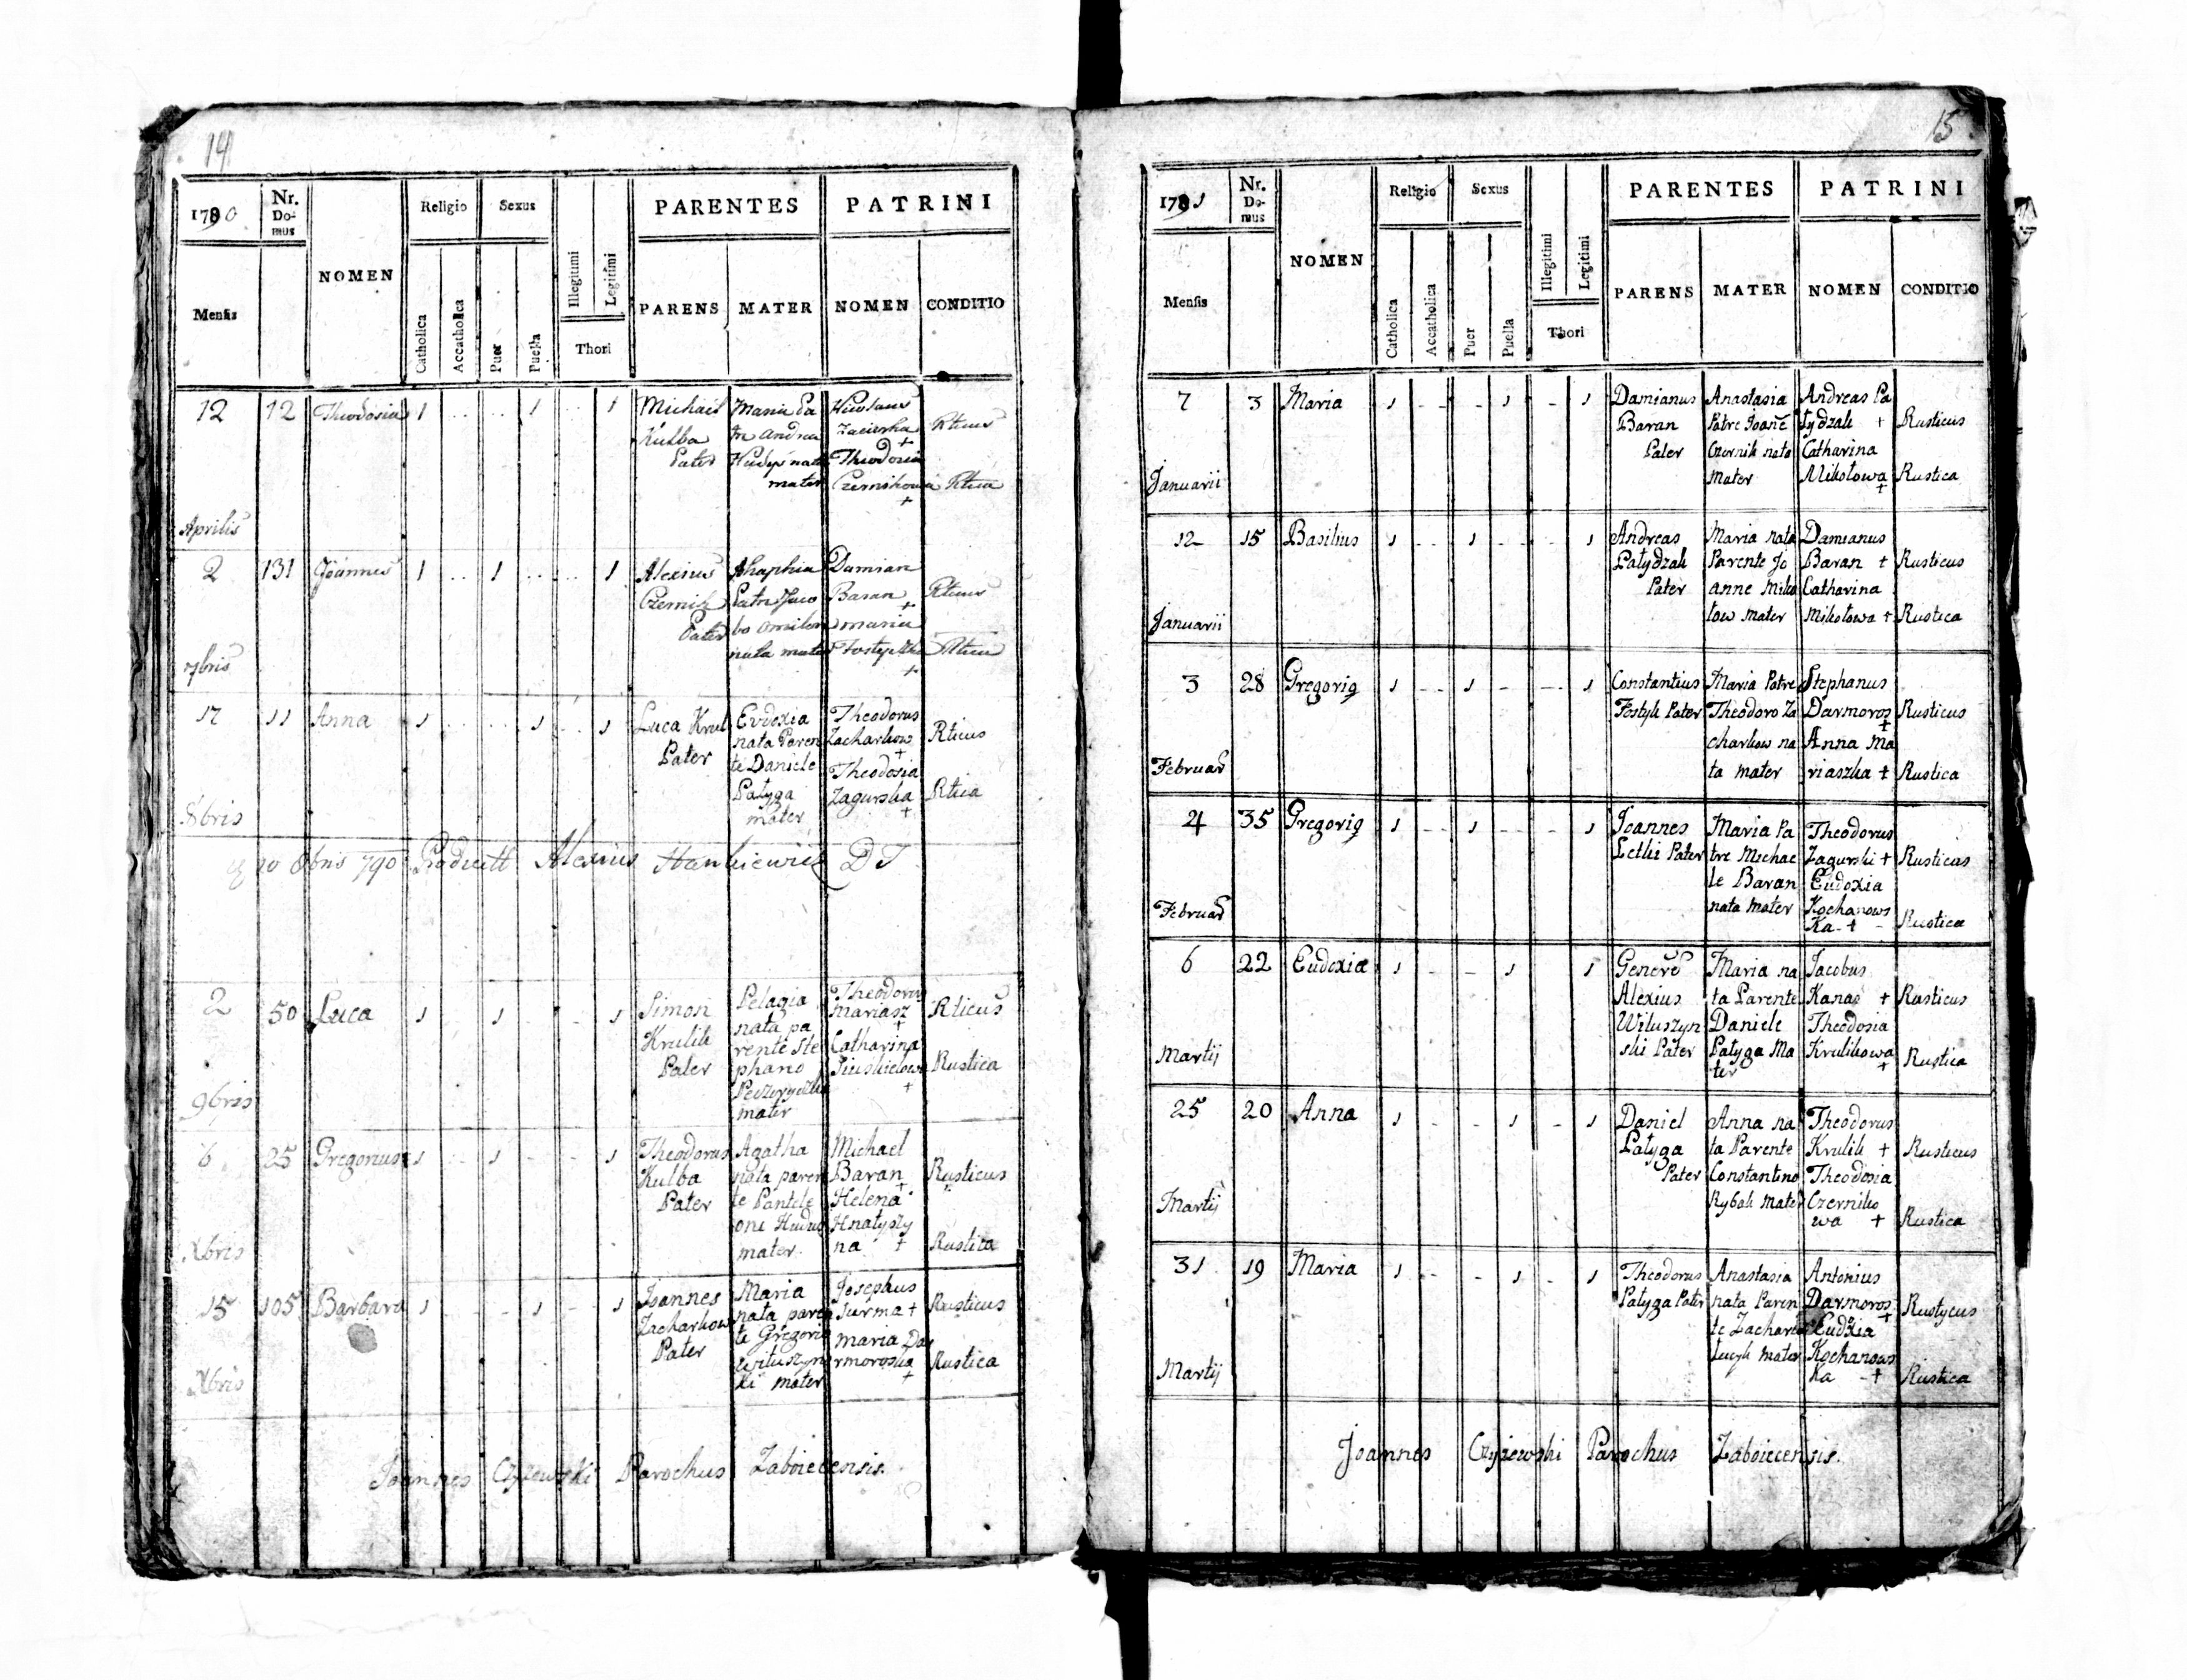 14
1790
Nr. Do- mus
NOMEN
Religio
Sexus
Illegitimi
Legitimi
PARENTES
PATRINI
Mensis
Catholica
Accatholica
Puer
Puella
Thori
PARENS
MATER
NOMEN
CONDITIO
12 12 Theodosia 1 .. .. 1 .. 1 Michael Maria Pa
Kulba tre Andrea Zacierka + Rticus
Pater nata Theodosia
mater Czernikowa Rtica
+
Aprilis
2 131 Joannes 1 .. 1 .. .. 1 Alexius Ahaphia Damian
Czernik Patre Jaco Baran Rticus
Pater bo nata mater Maria +
7bris
17 11 Anna 1 .. .. 1 .. 1 Luca Krul Eudoxia Theodorus
Pater nata Paren Zacharkow Rticus
te Daniele + Theodosia
Patyga Zagurska Rtica
mater +
8bris
20 8bris 790 Alexius Stankiewicz
2 50 Luca 1 .. 1 .. 1 Simon Pelagia Theodorus
Krulik nata pa Mariasz Rticus
Pater rente Ste + Catharina
phano Rustica
mater +
9bris
6 25 Gregorius 1 .. 1 - - 1 Theodorus Agatha Michael
Kulba nata paren Baran Rusticus
Pater te Pantele + Helena
oni Hnatyszy
mater. na + Rustica
Xbris
15 105 Barbara 1 - - 1 - 1 Joannes Maria Josephus
Zacharkow nata paren Jurma + Rusticus
Pater te Gregorio Maria Da
Wituszyns rmoroska Rustica
ki mater +
Xbris
Joannes Czyzewski Parochus Zaboiecensis.
15
1791
Nr. Do- mus
NOMEN
Religio
Sexus
Illegitimi
Legitimi
PARENTES
PATRINI
Mensis
Catholica
Accatholica
Puer
Puella
Thori
PARENS
MATER
NOMEN
CONDITIO
7 3 Maria 1 - - 1 - 1 Damianus Anastasia Andreas Pa
Baran Patre Joañe tydzak + Rusticus
Pater Czernik nata Catharina
Januarii mater Mikołowa + Rustica
12 15 Basilius 1 - 1 - - 1 Andreas Maria nata Damianus
Patydzak Parente Jo Baran + Rusticus
Pater anne Miko Catharina
Januarii łow mater Mikołowa + Rustica
3 28 Gregorig 1 - - 1 - - 1 Constantius Maria Patre Stephanus
Fostyk Pater Theodoro Za Darmoros + Rusticus
charkow na Anna Ma
Februar ta mater riaszka + Rustica
4 35 Gregorig 1 - - 1 - - 1 Joannes Maria Pa Theodorus
Letki Pater tre Michae Zagurski + Rusticus
le Baran Eudoxia
nata mater Kochanows
Februar ka - + - Rustica
6 22 Eudoxia 1 - - 1 1 Maria na Jacobus
Alexius ta Parente + Rusticus
Wituszyn Daniele Theodosia
ski Pater Patyga Ma Krulikowa
Martij ter + Rustica
25 20 Anna 1 - - 1 - 1 Daniel Anna na Theodorus
Patyga ta Parente Krulik + Rusticus
Pater Constantino Theodosia
Rybak Mater Czerniko
Martij wa + Rustica
31 19 Maria 1 - - 1 - 1 Theodorus Anastasia Antonius
Patyga Pater nata Paren Darmoros + Rustycus
te Eudoxia
mater Kochanows
Martij ka - + Rustica
Joannes Czyżewski Parochus Zaboiecensis.